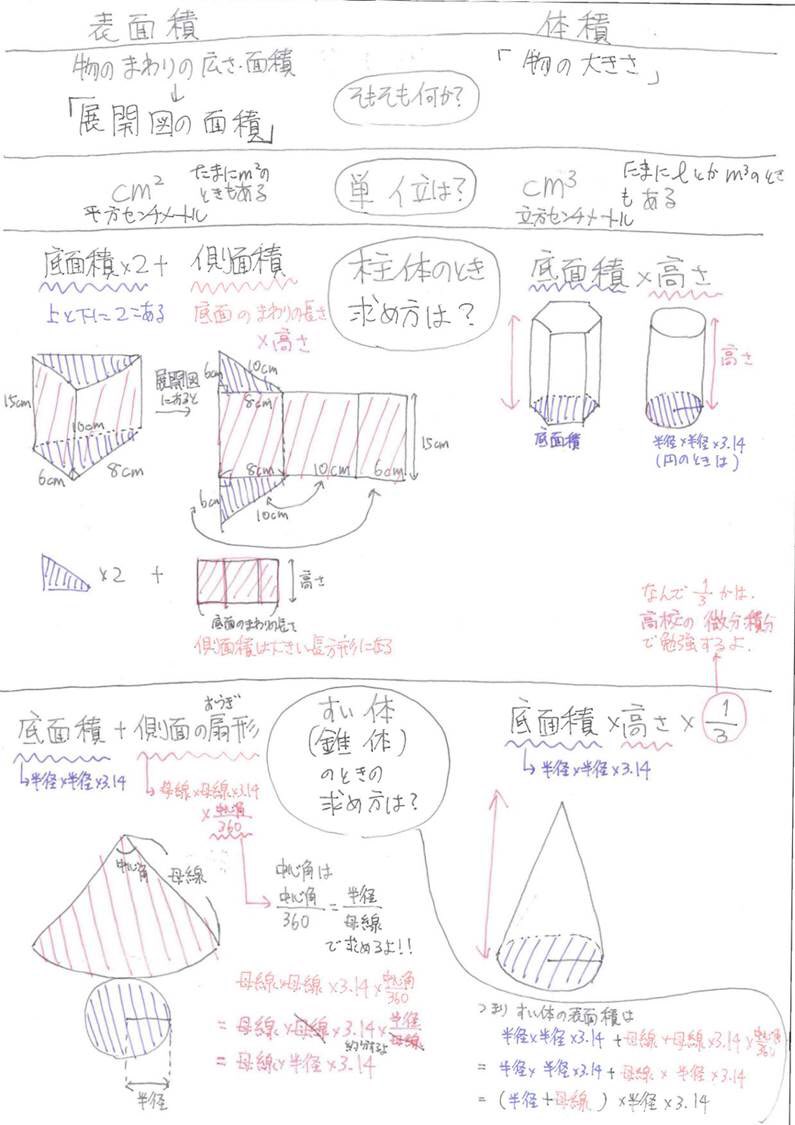 表面積
体積
物のまわりの広さ・面積
↓
「展開図の面積」
そもそも何か?
「物の大きさ」
cm²
平方センチメートル
たまにm²の
ときもある
単位は?
cm³
立方センチメートル
たまにℓとかm³のとき
もある
底面積×2+側面積
上と下に2こある
底面のまわりの長さ
×高さ
柱体のとき
求め方は?
底面積×高さ
15cm
10cm
6cm
8cm
展開図
にすると
→
6cm
10cm
8cm
8cm
10cm
6cm
15cm
6cm
10cm
高さ
底面積
半径×半径×3.14
(円のときは)
×2 +
高さ
底面のまわりの長さ
側面積は大きい長方形になる
なんで1/3かは、
高校の微分積分
で勉強するよ.
おうぎ
底面積+側面の扇形
↳半径×半径×3.14
↳母線×母線×3.14
×中心角/360
すい体
(錐体)
のときの
求め方は?
底面積×高さ×1/3
↳半径×半径×3.14
中心角
母線
中心角は
中心角/360=半径/母線
で求めるよ!!
半径
母線×母線×3.14×中心角/360
=母線×母線×3.14×半径/母線
約分するよ
=母線×半径×3.14
つまり すい体の表面積は
半径×半径×3.14+母線×母線×3.14×中心角/360
=半径×半径×3.14+母線×半径×3.14
=(半径+母線)×半径×3.14